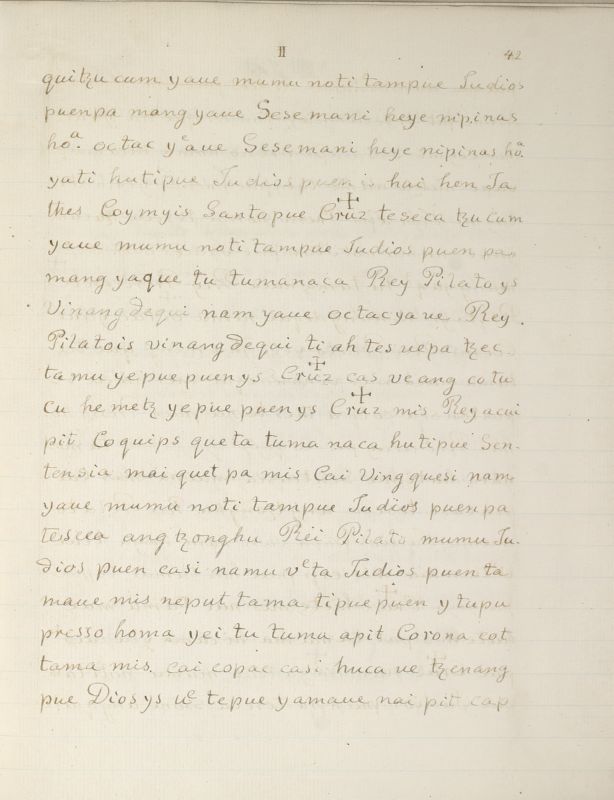 II 42
quitzu cum yaue mumu noti tampue Judios
puenpa mang yaue Sesemani heye nipinas
hoª. octac yᵉaue Sesemani heye nipinas hoª.
yati hutipue Judios puen is hai hen Ja
thes Coymyis Santapue Cruz teseca tzucum
yaue mumu noti tampue Judios puen pa
mang yaque tu tumanaca Rey Pilato ys
Vinang dequi nam yaue octac yaue Rey.
Pilatois vinang dequi ti ah tes uepa tzec
tamu ye pue puen ys Cruz cas veang co tu
cu he metz yepue puenys Cruz mis Rey acui
pit Coquips que ta tuma naca hutipue Sen-
tensia mai quet pa mis Cai Ving quesi nam
yaue mumu noti tampue Judios puenpa
teseca ang tzonghu Rei Pilato mumu Ju-
dios puen casi namu vᵉta Judios puen ta
maue mis neput tama tipue puen y tupu
presso homa yei tu tuma apit Corona cot
tama mis. cai copac casi huca ue tzenang
pue Dios ys uᵉ tepue yamaue nai pit cap